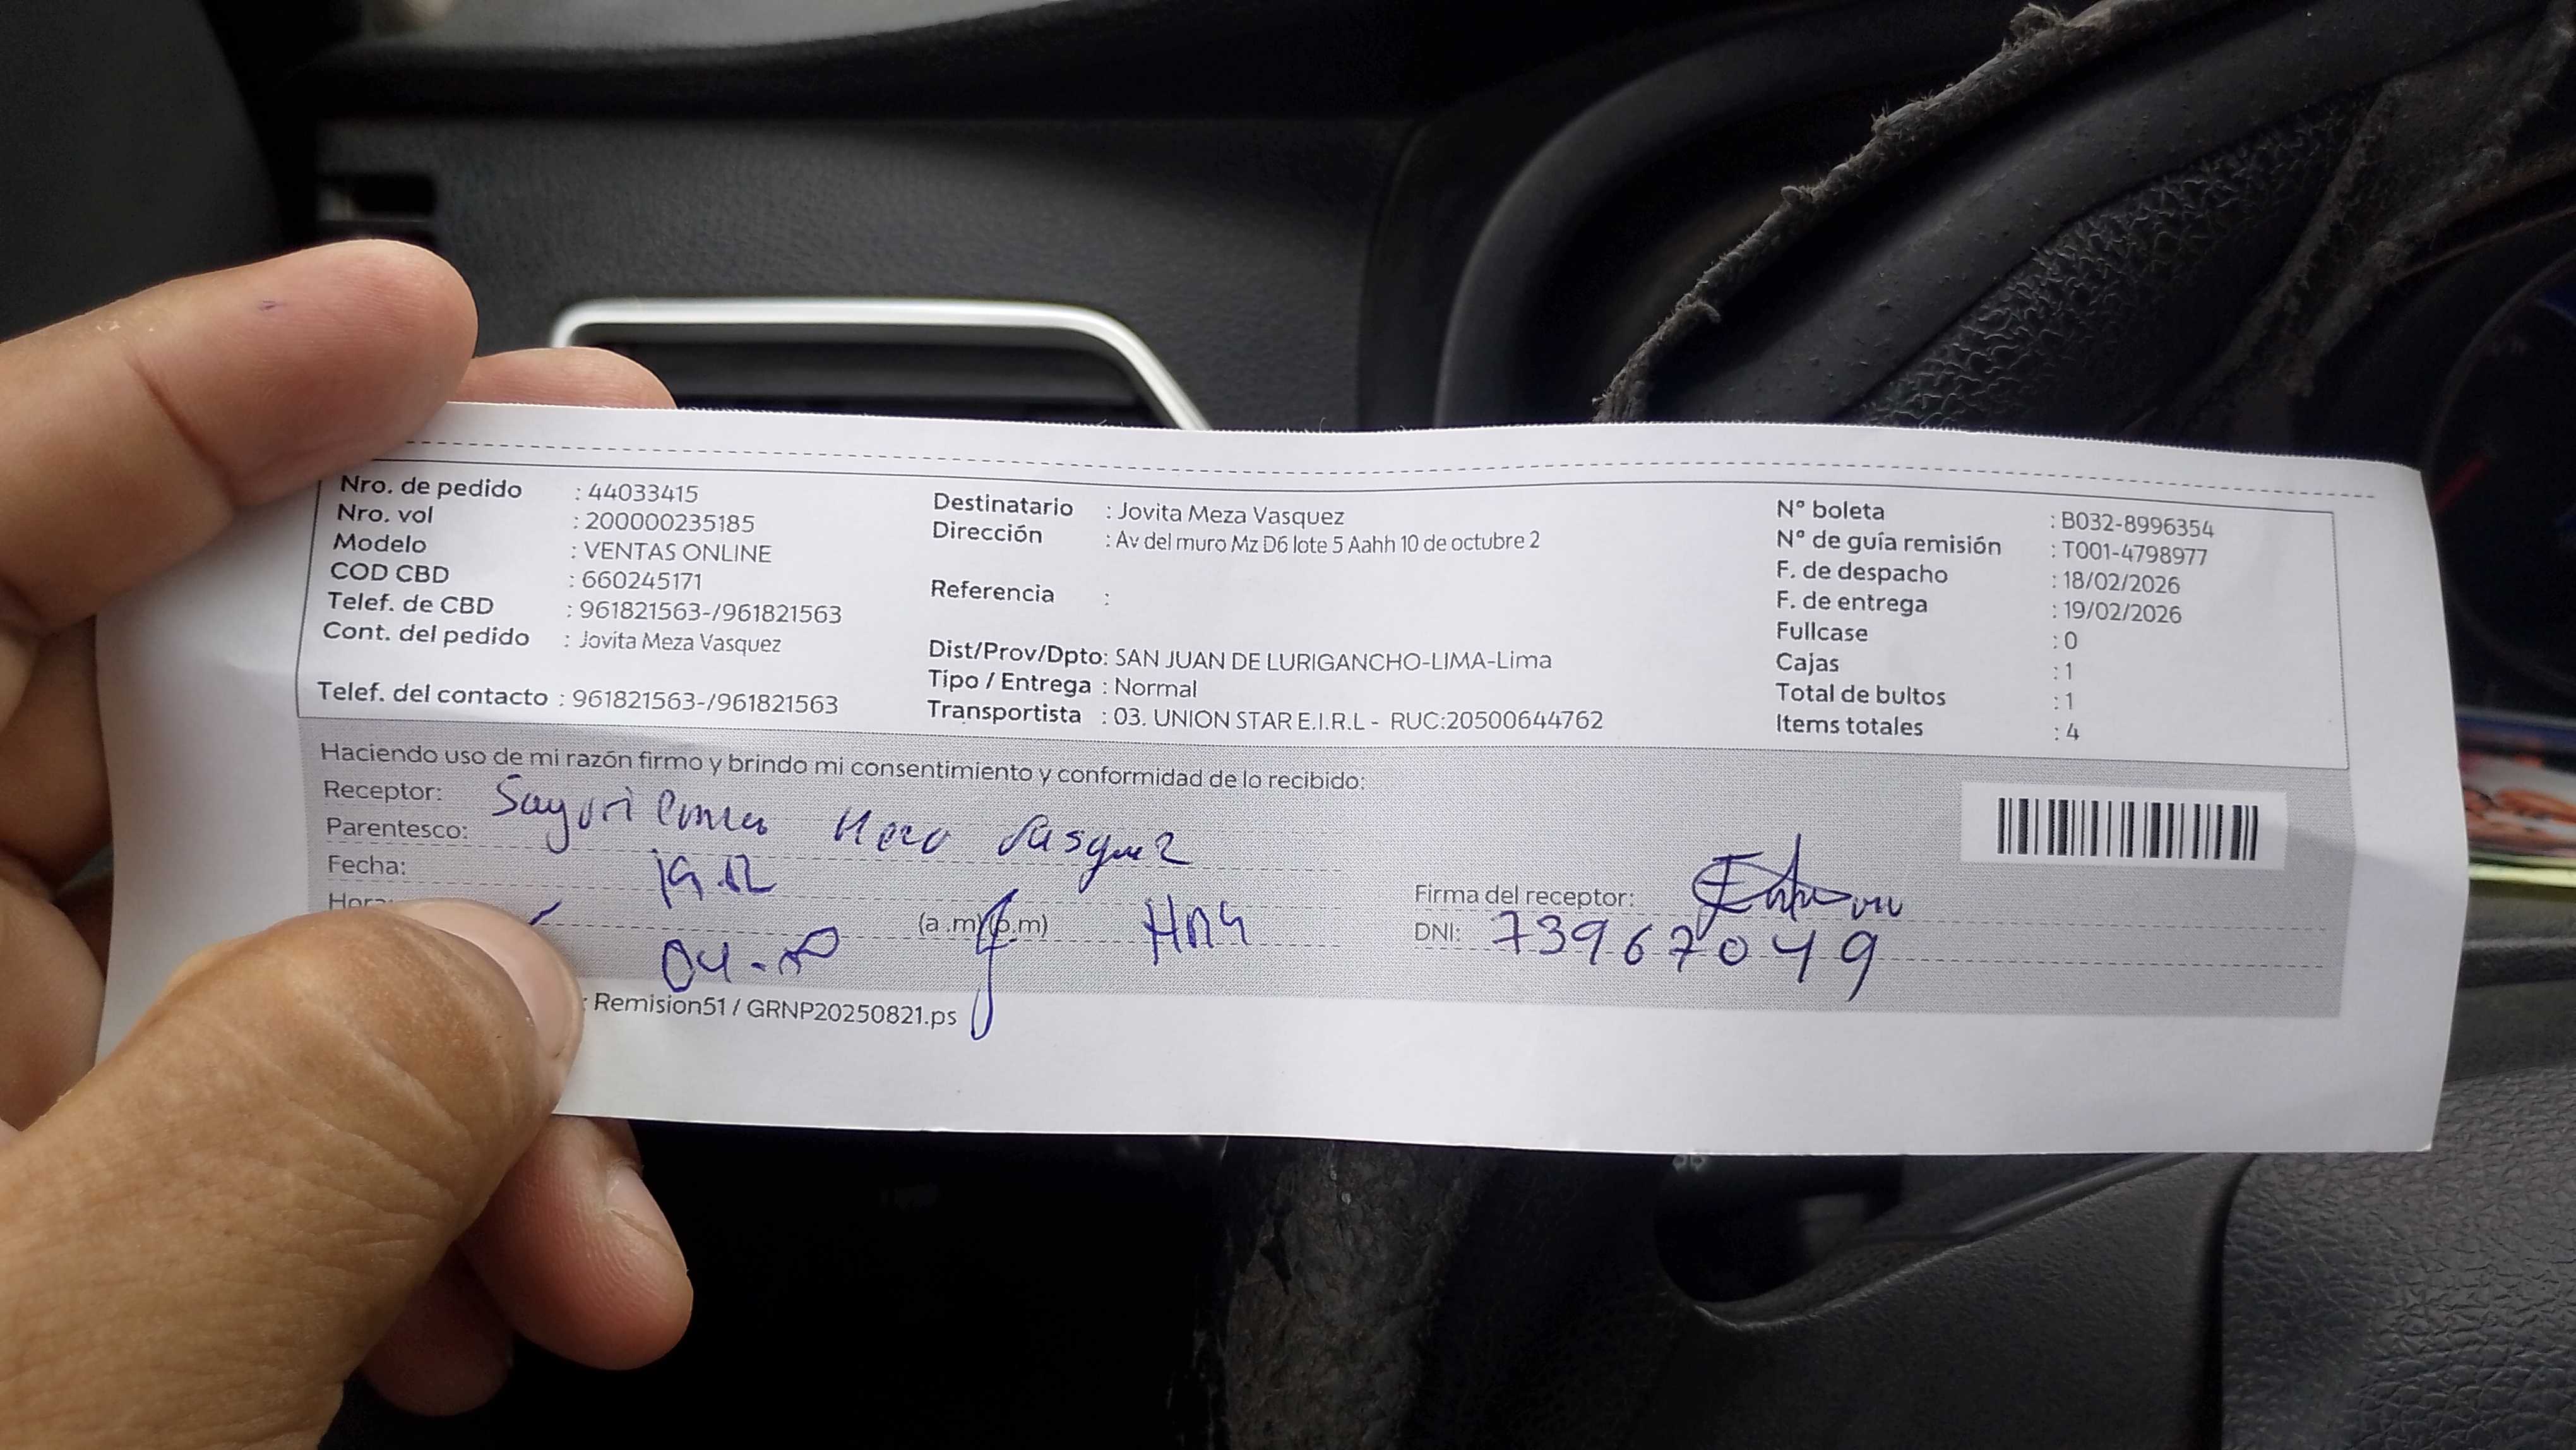 Nro. de pedido : 44033415
Nro. vol : 200000235185
Modelo : VENTAS ONLINE
COD CBD : 660245171
Telef. de CBD : 961821563-/961821563
Cont. del pedido : Jovita Meza Vasquez
Telef. del contacto : 961821563-/961821563
Destinatario : Jovita Meza Vasquez
Dirección : Av del muro Mz D6 lote 5 Aahh 10 de octubre 2
Referencia :
Dist/Prov/Dpto: SAN JUAN DE LURIGANCHO-LIMA-Lima
Tipo / Entrega : Normal
Transportista : 03. UNION STAR E.I.R.L - RUC:20500644762
N° boleta : B032-8996354
N° de guía remisión : T001-4798977
F. de despacho : 18/02/2026
F. de entrega : 19/02/2026
Fullcase : 0
Cajas : 1
Total de bultos : 1
Items totales : 4
Haciendo uso de mi razón firmo y brindo mi consentimiento y conformidad de lo recibido:
Receptor: Sayuri Vasquez
Parentesco:
Fecha:
Hora: (a.m)(p.m)
Firma del receptor:
DNI: 73967049
: Remision51 / GRNP20250821.ps